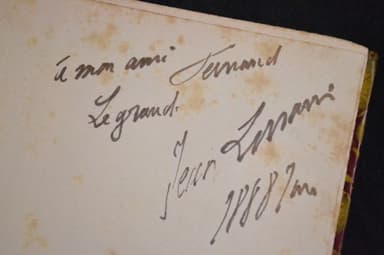 à mon ami Fernand
Legrand.
Jean Lorrain
1888